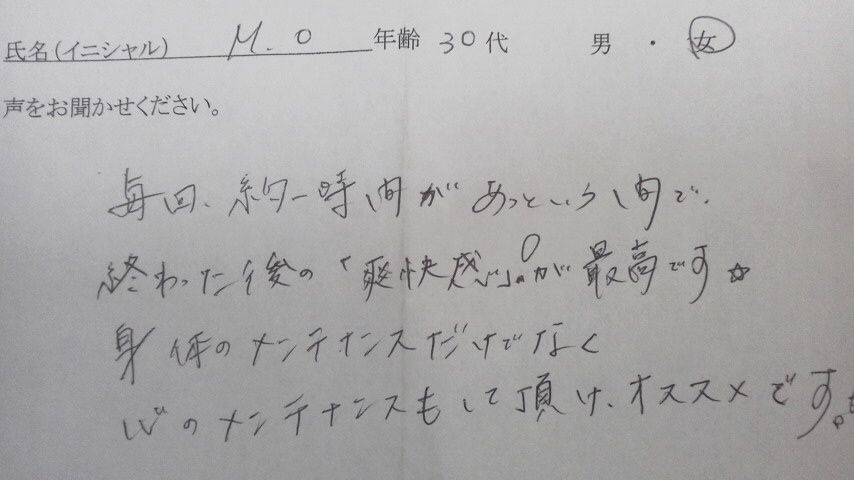 氏名(イニシャル) M.O 年齢 30代 男 ・ 女
声をお聞かせください。
毎回、約一時間があっという間で、
終わった後の「爽快感」!!が最高です☆
身体のメンテナンスだけでなく
心のメンテナンスもして頂け、オススメです。